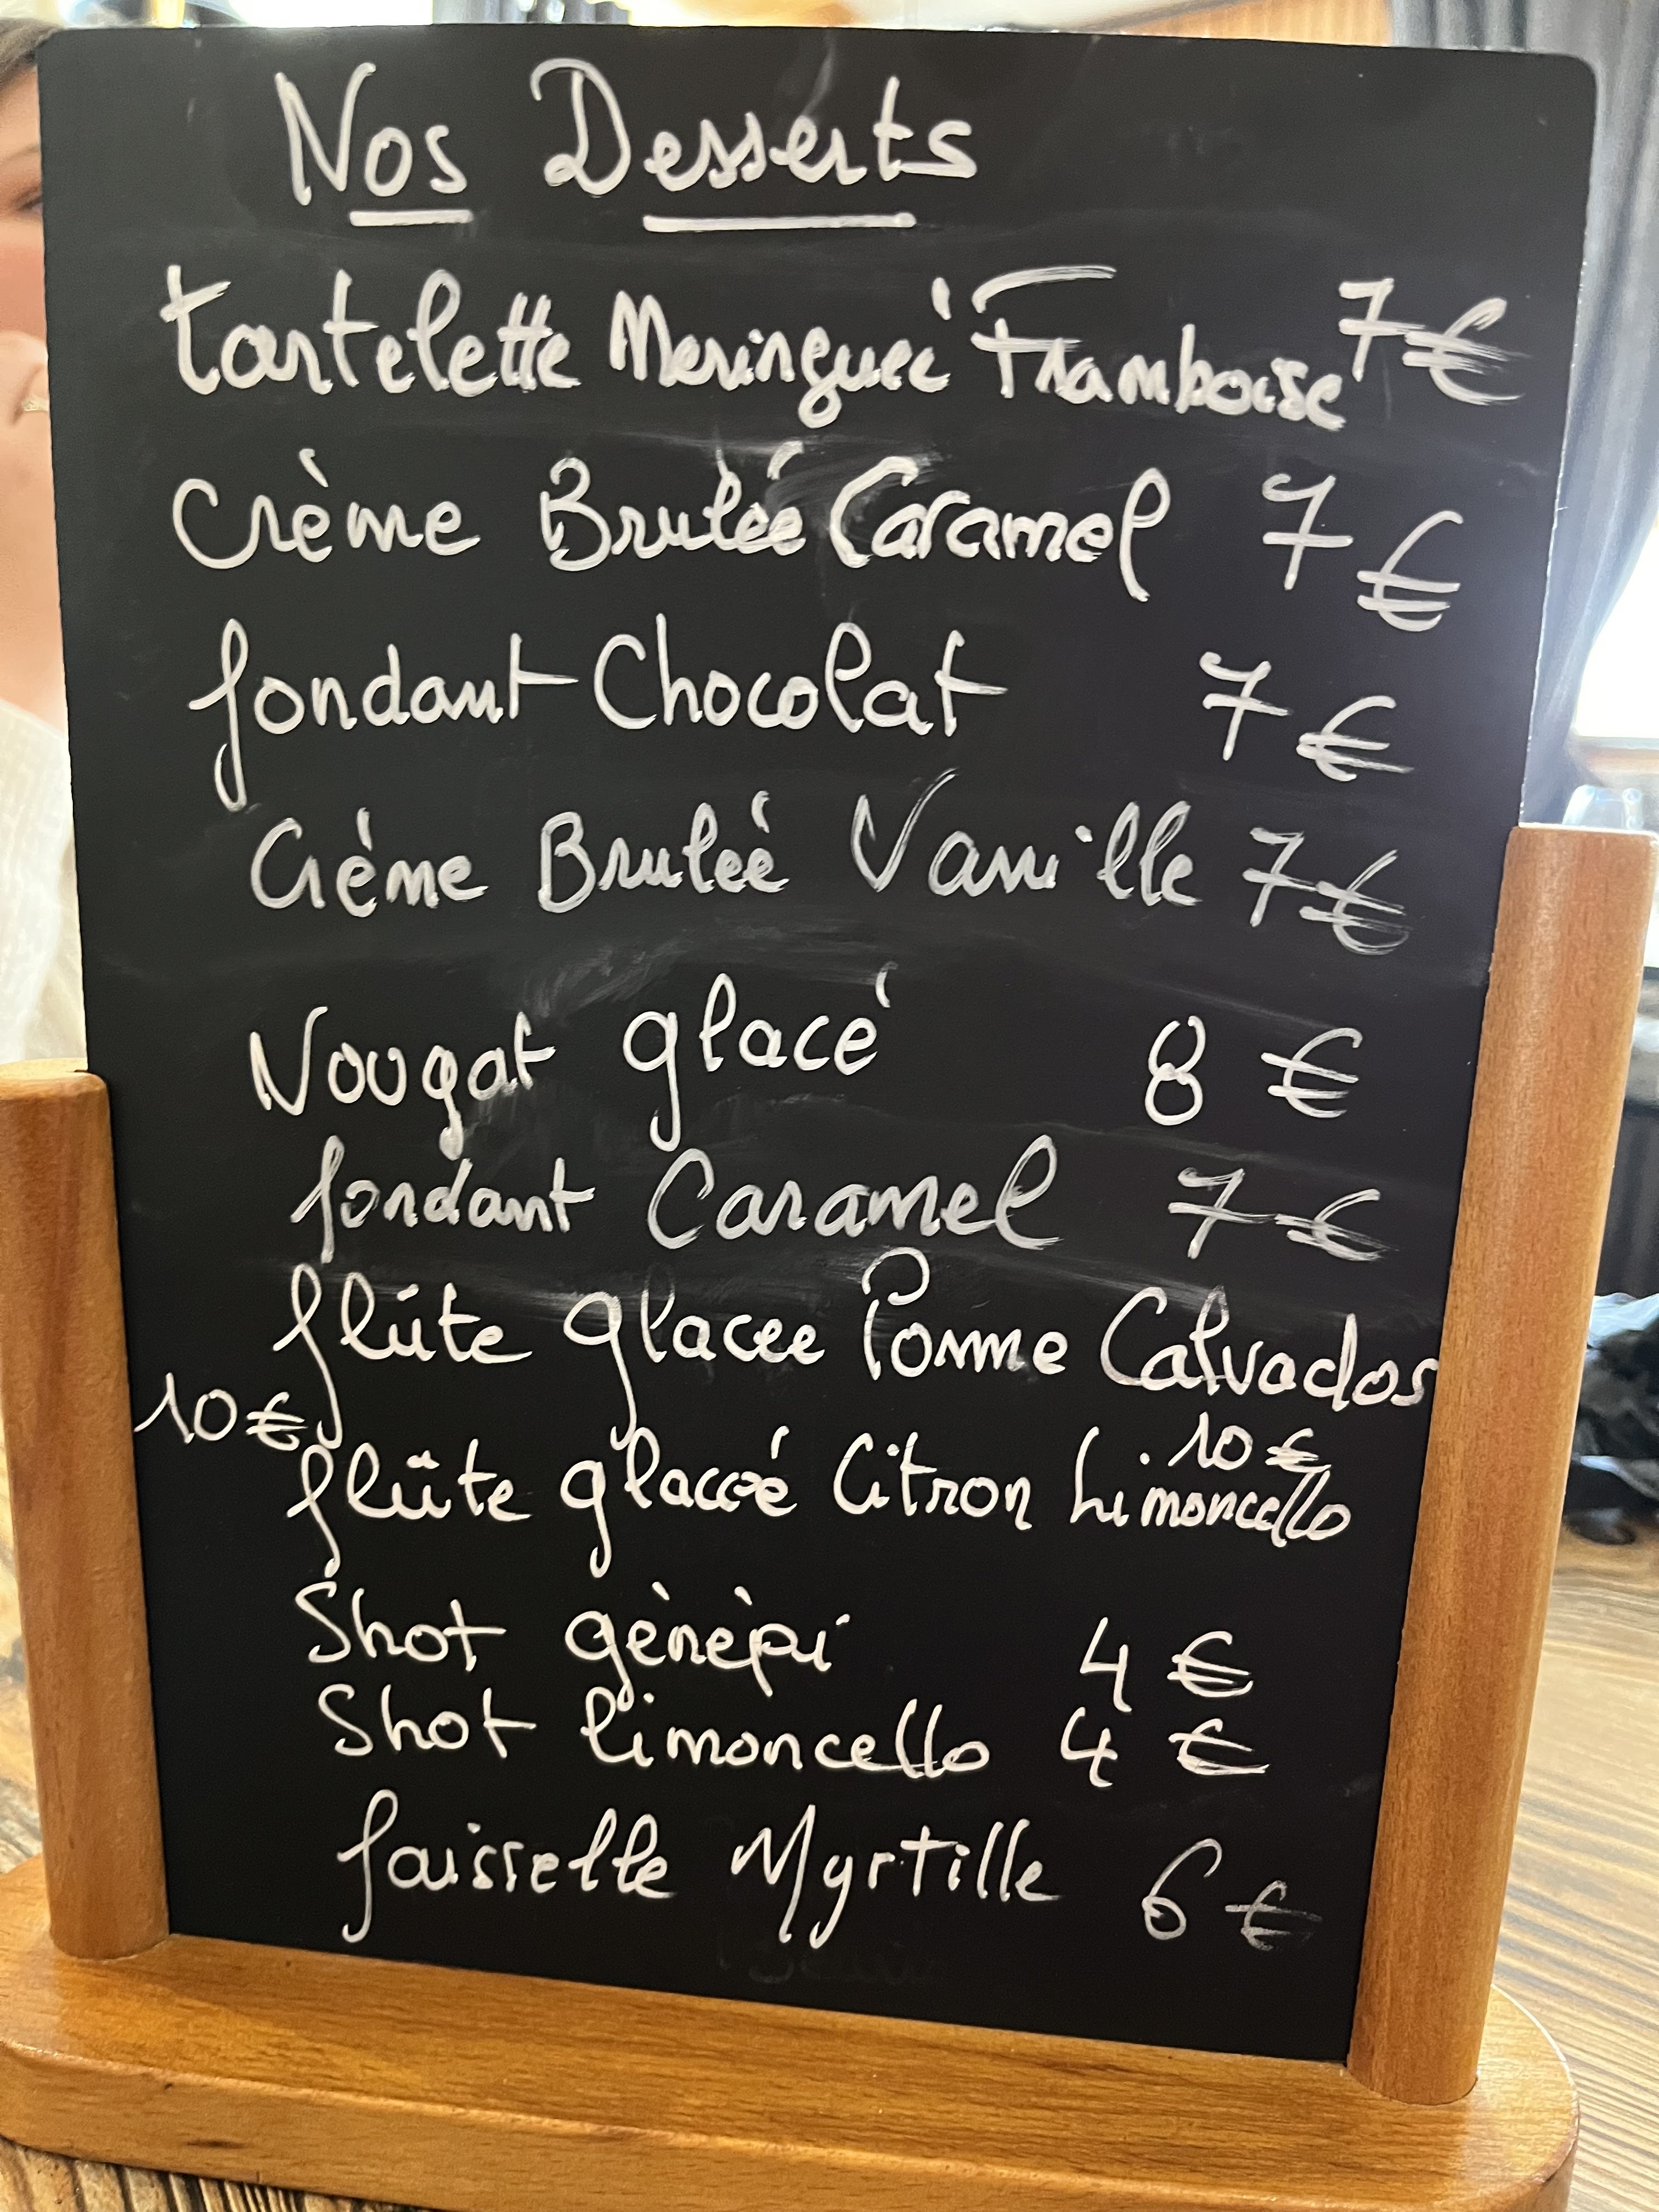 Nos Desserts
tartelette Meringueé Framboise 7€
Crème Bruleé Caramel 7€
fondant Chocolat 7€
Crème Bruleé Vanille 7€
Nougat glacé 8 €
fondant Caramel 7€
flûte glacee Pomme Calvados
10€ 10€
flûte glaceé Citron Limoncello
Shot gènèpi 4 €
Shot limoncello 4 €
faisselle Myrtille 6€